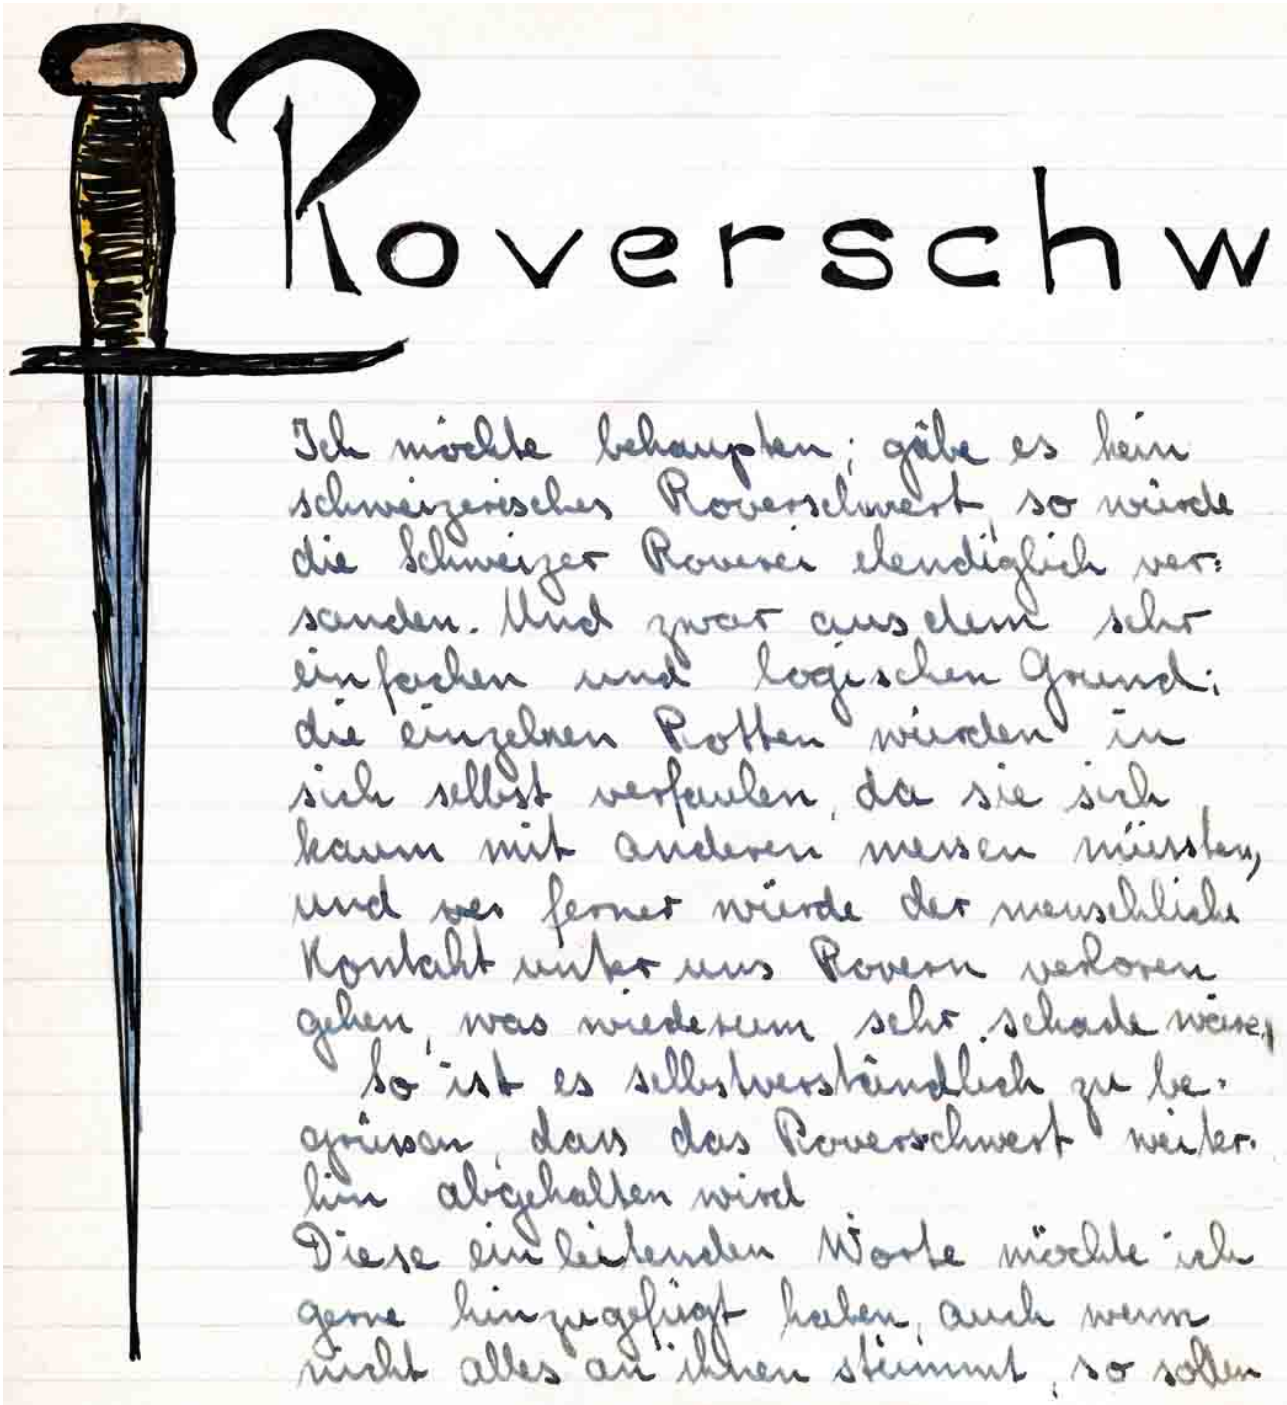 Roverschw
Ich möchte behaupten; gäbe es kein
schweizerisches Roverschwert, so würde
die Schweizer Roverei elendiglich ver=
sanden. Und zwar aus dem sehr
einfachen und logischen Grund;
die einzelnen Rotten würden in
sich selbst verfaulen, da sie sich
kaum mit anderen messen müssten,
und ferner würde der menschliche
Kontakt unter uns Rovern verloren
gehen, was wiederum sehr schade wäre,
So ist es selbstverständlich zu be=
grüssen, dass das Roverschwert weiter=
hin abgehalten wird
Diese einleitenden Worte möchte ich
gerne hinzugefügt haben, auch wenn
nicht alles an ihnen stimmt, so sollen